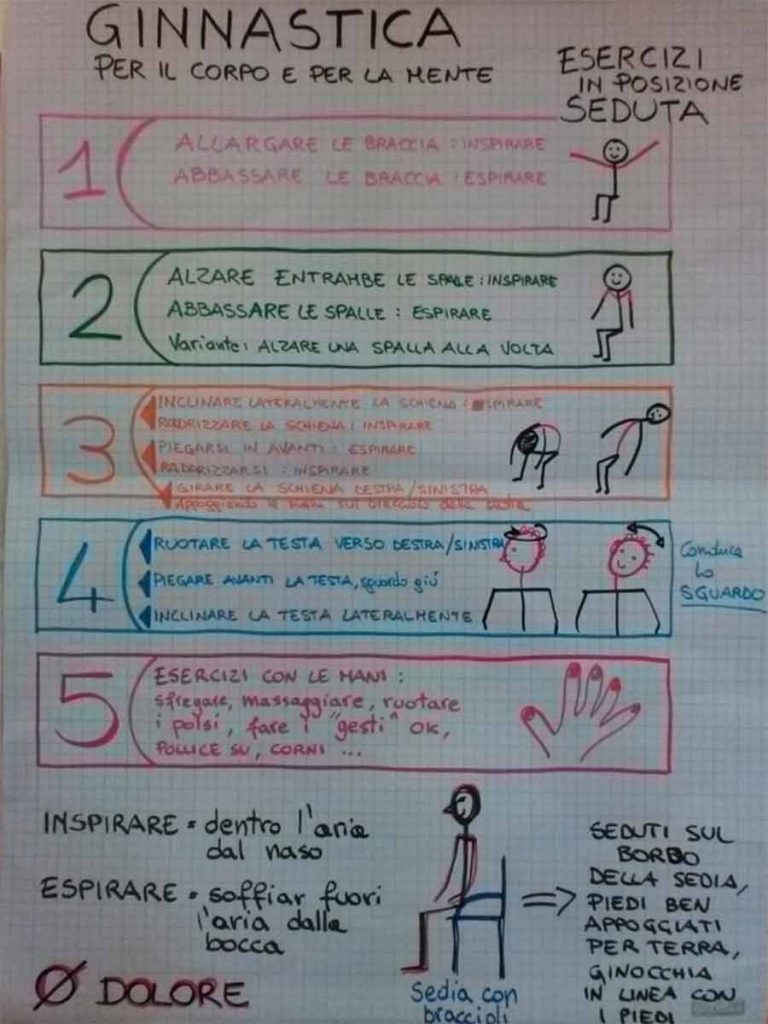 GINNASTICA
PER IL CORPO E PER LA MENTE
ESERCIZI
IN POSIZIONE
SEDUTA
1
ALLARGARE LE BRACCIA : INSPIRARE
ABBASSARE LE BRACCIA : ESPIRARE
2
ALZARE ENTRAMBE LE SPALLE : INSPIRARE
ABBASSARE LE SPALLE : ESPIRARE
Variante: ALZARE UNA SPALLA ALLA VOLTA
3
INCLINARE LATERALMENTE LA SCHIENA : ESPIRARE
RADDRIZZARE LA SCHIENA : INSPIRARE
PIEGARSI IN AVANTI : ESPIRARE
RADDRIZZARSI : INSPIRARE
GIRARE LA SCHIENA DESTRA/SINISTRA
Appoggiando le mani sul bracciolo della sedia
4
RUOTARE LA TESTA VERSO DESTRA/SINISTRA
PIEGARE AVANTI LA TESTA, sguardo giú
INCLINARE LA TESTA LATERALMENTE
Conduce
lo
SGUARDO
5
ESERCIZI CON LE MANI :
sfregare, massaggiare, ruotare
i polsi, fare i "gesti" OK,
POLLICE SU, CORNI ...
INSPIRARE = dentro l'aria
dal naso
ESPIRARE = soffiar fuori
l'aria dalla
bocca
Ø DOLORE
Sedia con
braccioli
SEDUTI SUL
BORDO
DELLA SEDIA,
PIEDI BEN
APPOGGIATI
PER TERRA,
GINOCCHIA
IN LINEA CON
I PIEDI